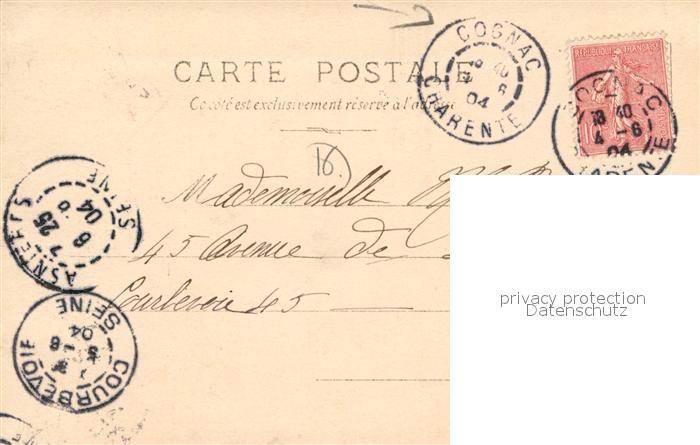 COGNAC
18 40
4 -6
04
CHARENTE
REPUBLIQUE FRANÇAISE
COGNAC
18 40
4 -6
04
CARTE POSTALE
Ce côté est exclusivement réservé à l'adresse
16.
Mademoiselle
45 Avenue de
Courbevoie 45
ASNIERES
7 25
6
04
SEINE
COURBEVOIE
04
SEINE
privacy protection
Datenschutz